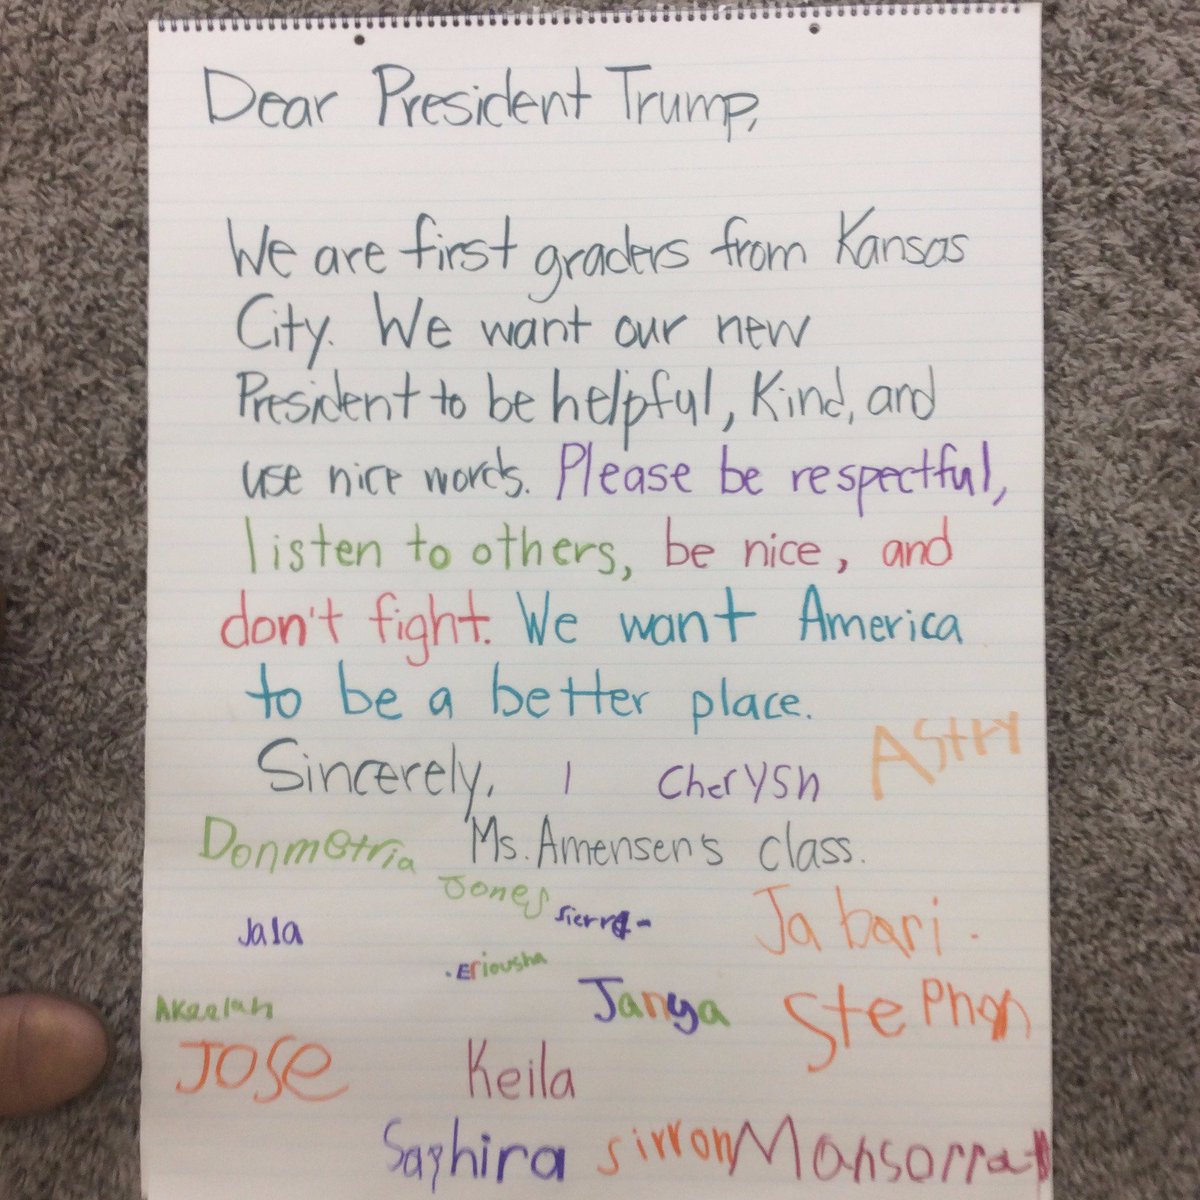 Dear President Trump,
We are first graders from Kansas
City. We want our new
President to be helpful, Kind, and
use nice words. Please be respectful,
listen to others, be nice, and
don't fight. We want America
to be a better place.
Sincerely, Cherysh Astry
Donmetria Ms. Amensen's class.
Jones Sierra Jabari.
Jala
Eriousha
Akeelah Janya Stephon
Jose Keila
Saphira sirron Monsorrat